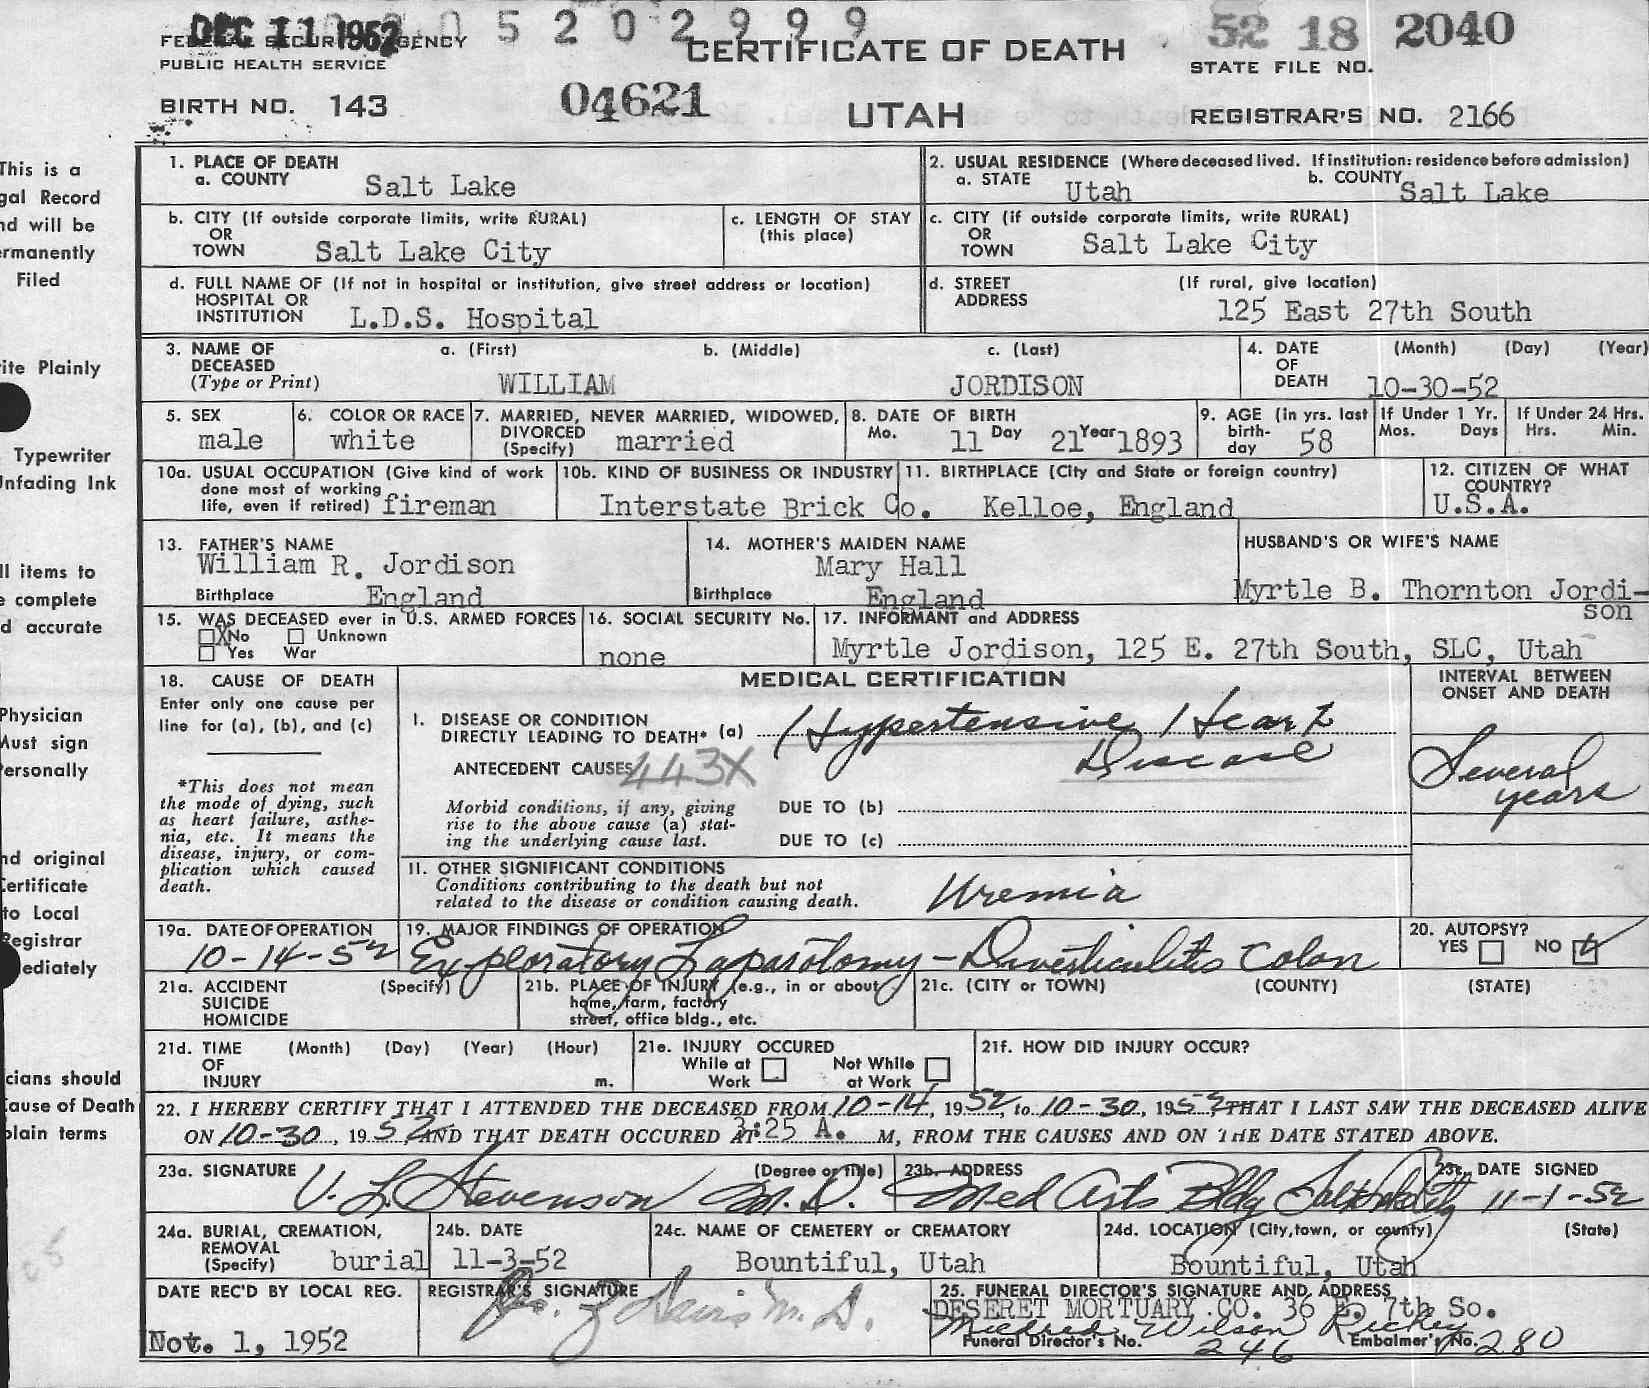 DEC 11 1952
0 5 2 0 2 9 9 9
52 18 2040
FEDERAL SECURITY AGENCY
PUBLIC HEALTH SERVICE
CERTIFICATE OF DEATH
STATE FILE NO.
BIRTH NO. 143
04621
UTAH
REGISTRAR'S NO. 2166
This is a
gal Record
nd will be
ermanently
Filed
ite Plainly
Typewriter
nfading Ink
ll items to
e complete
d accurate
Physician
Must sign
ersonally
nd original
Certificate
to Local
Registrar
ediately
cians should
Cause of Death
plain terms
1. PLACE OF DEATH
a. COUNTY Salt Lake
2. USUAL RESIDENCE (Where deceased lived. If institution: residence before admission)
a. STATE Utah b. COUNTY Salt Lake
b. CITY (If outside corporate limits, write RURAL)
OR
TOWN Salt Lake City
c. LENGTH OF STAY
(this place)
c. CITY (if outside corporate limits, write RURAL)
OR
TOWN Salt Lake City
d. FULL NAME OF (If not in hospital or institution, give street address or location)
HOSPITAL OR
INSTITUTION L.D.S. Hospital
d. STREET (If rural, give location)
ADDRESS
125 East 27th South
3. NAME OF DECEASED
(Type or Print)
a. (First) b. (Middle) c. (Last)
WILLIAM JORDISON
4. DATE OF DEATH
(Month) (Day) (Year)
10-30-52
5. SEX
male
6. COLOR OR RACE
white
7. MARRIED, NEVER MARRIED, WIDOWED,
DIVORCED
(Specify) married
8. DATE OF BIRTH
Mo. 11 Day 21 Year 1893
9. AGE (in yrs. last
birth-
day 58
If Under 1 Yr.
Mos. Days
If Under 24 Hrs.
Hrs. Min.
10a. USUAL OCCUPATION (Give kind of work
done most of working
life, even if retired) fireman
10b. KIND OF BUSINESS OR INDUSTRY
Interstate Brick Co.
11. BIRTHPLACE (City and State or foreign country)
Kelloe, England
12. CITIZEN OF WHAT
COUNTRY?
U.S.A.
13. FATHER'S NAME
William R. Jordison
Birthplace England
14. MOTHER'S MAIDEN NAME
Mary Hall
Birthplace England
HUSBAND'S OR WIFE'S NAME
Myrtle B. Thornton Jordi-
son
15. WAS DECEASED ever in U.S. ARMED FORCES
X No Unknown
Yes War
16. SOCIAL SECURITY No.
none
17. INFORMANT and ADDRESS
Myrtle Jordison, 125 E. 27th South, SLC, Utah
18. CAUSE OF DEATH
Enter only one cause per
line for (a), (b), and (c)
*This does not mean
the mode of dying, such
as heart failure, asthe-
nia, etc. It means the
disease, injury, or com-
plication which caused
death.
MEDICAL CERTIFICATION
INTERVAL BETWEEN
ONSET AND DEATH
I. DISEASE OR CONDITION
DIRECTLY LEADING TO DEATH* (a) Hypertensive Heart
Disease
Several
years
ANTECEDENT CAUSES 443X
Morbid conditions, if any, giving
rise to the above cause (a) stat-
ing the underlying cause last.
DUE TO (b)
DUE TO (c)
II. OTHER SIGNIFICANT CONDITIONS
Conditions contributing to the death but not
related to the disease or condition causing death.
Uremia
19a. DATE OF OPERATION
10-14-52
19. MAJOR FINDINGS OF OPERATION
Exploratory Laparotomy - Diverticulitis Colon
20. AUTOPSY?
YES NO
21a. ACCIDENT (Specify)
SUICIDE
HOMICIDE
21b. PLACE OF INJURY (e.g., in or about
home, farm, factory
street, office bldg., etc.
21c. (CITY or TOWN) (COUNTY) (STATE)
21d. TIME (Month) (Day) (Year) (Hour)
OF
INJURY m.
21e. INJURY OCCURED
While at Work Not While at Work
21f. HOW DID INJURY OCCUR?
22. I HEREBY CERTIFY THAT I ATTENDED THE DECEASED FROM 10-14, 1952, to 10-30, 1952 THAT I LAST SAW THE DECEASED ALIVE
ON 10-30, 1952 AND THAT DEATH OCCURED AT 3:25 A. M, FROM THE CAUSES AND ON THE DATE STATED ABOVE.
23a. SIGNATURE (Degree or Title)
V. L. Stevenson M.D.
23b. ADDRESS
Med Arts Bldg Salt Lake City
23c. DATE SIGNED
11-1-52
24a. BURIAL, CREMATION,
REMOVAL
(Specify) burial
24b. DATE
11-3-52
24c. NAME OF CEMETERY or CREMATORY
Bountiful, Utah
24d. LOCATION (City, town, or county) (State)
Bountiful, Utah
DATE REC'D BY LOCAL REG.
Nov. 1, 1952
REGISTRAR'S SIGNATURE
M.D.
25. FUNERAL DIRECTOR'S SIGNATURE AND ADDRESS
DESERET MORTUARY CO. 36 E. 7th So.
Mildred Wilson Rickey
Funeral Director's No. 246 Embalmer's No. 280